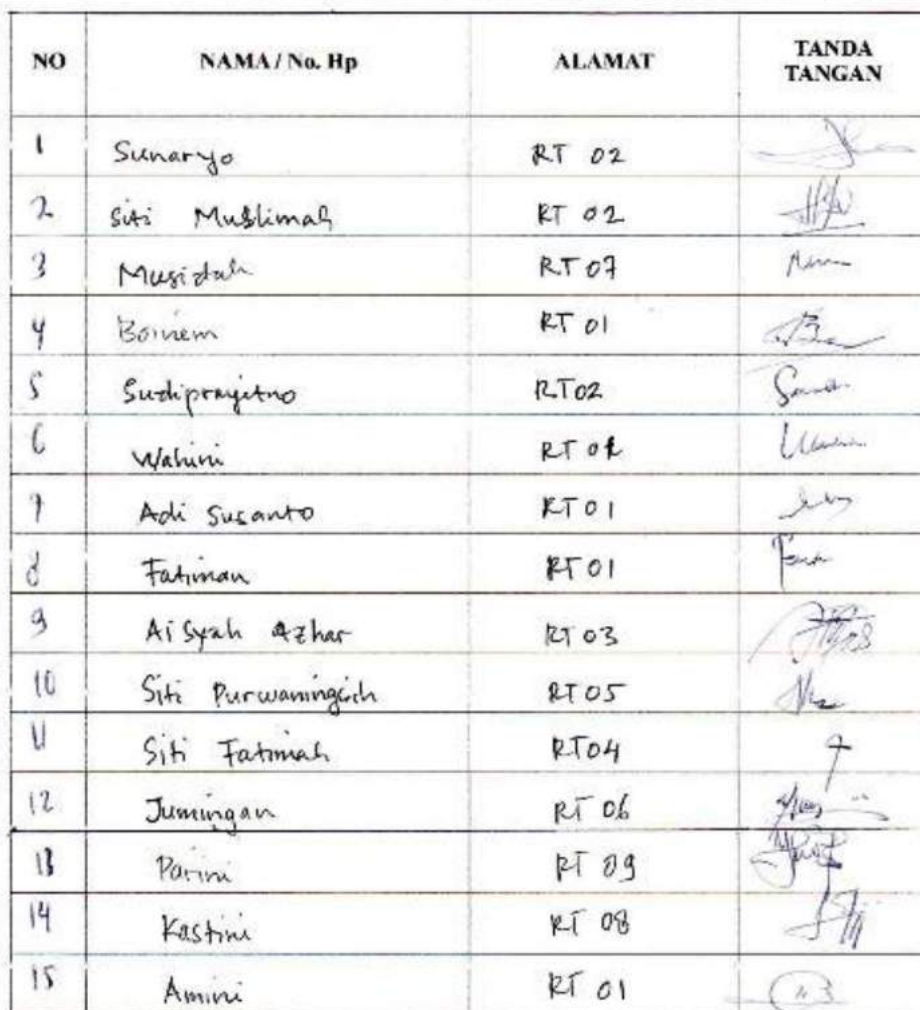 NO NAMA / No. Hp ALAMAT TANDA TANGAN
1 Sunaryo RT 02
2 Siti Muslimah RT 02
3 Musidah RT 07
4 Boinem RT 01
5 Sudiprayitno RT 02
6 Wahini RT
7 Adi Susanto RT 01
8 Fatiman RT 01
9 Aisyah Azhar RT 03
10 Siti Purwaningsih RT 05
11 Siti Fatimah RT 04
12 Jumingan RT 06
13 Parini RT 09
14 Kastini RT 08
15 Amini RT 01